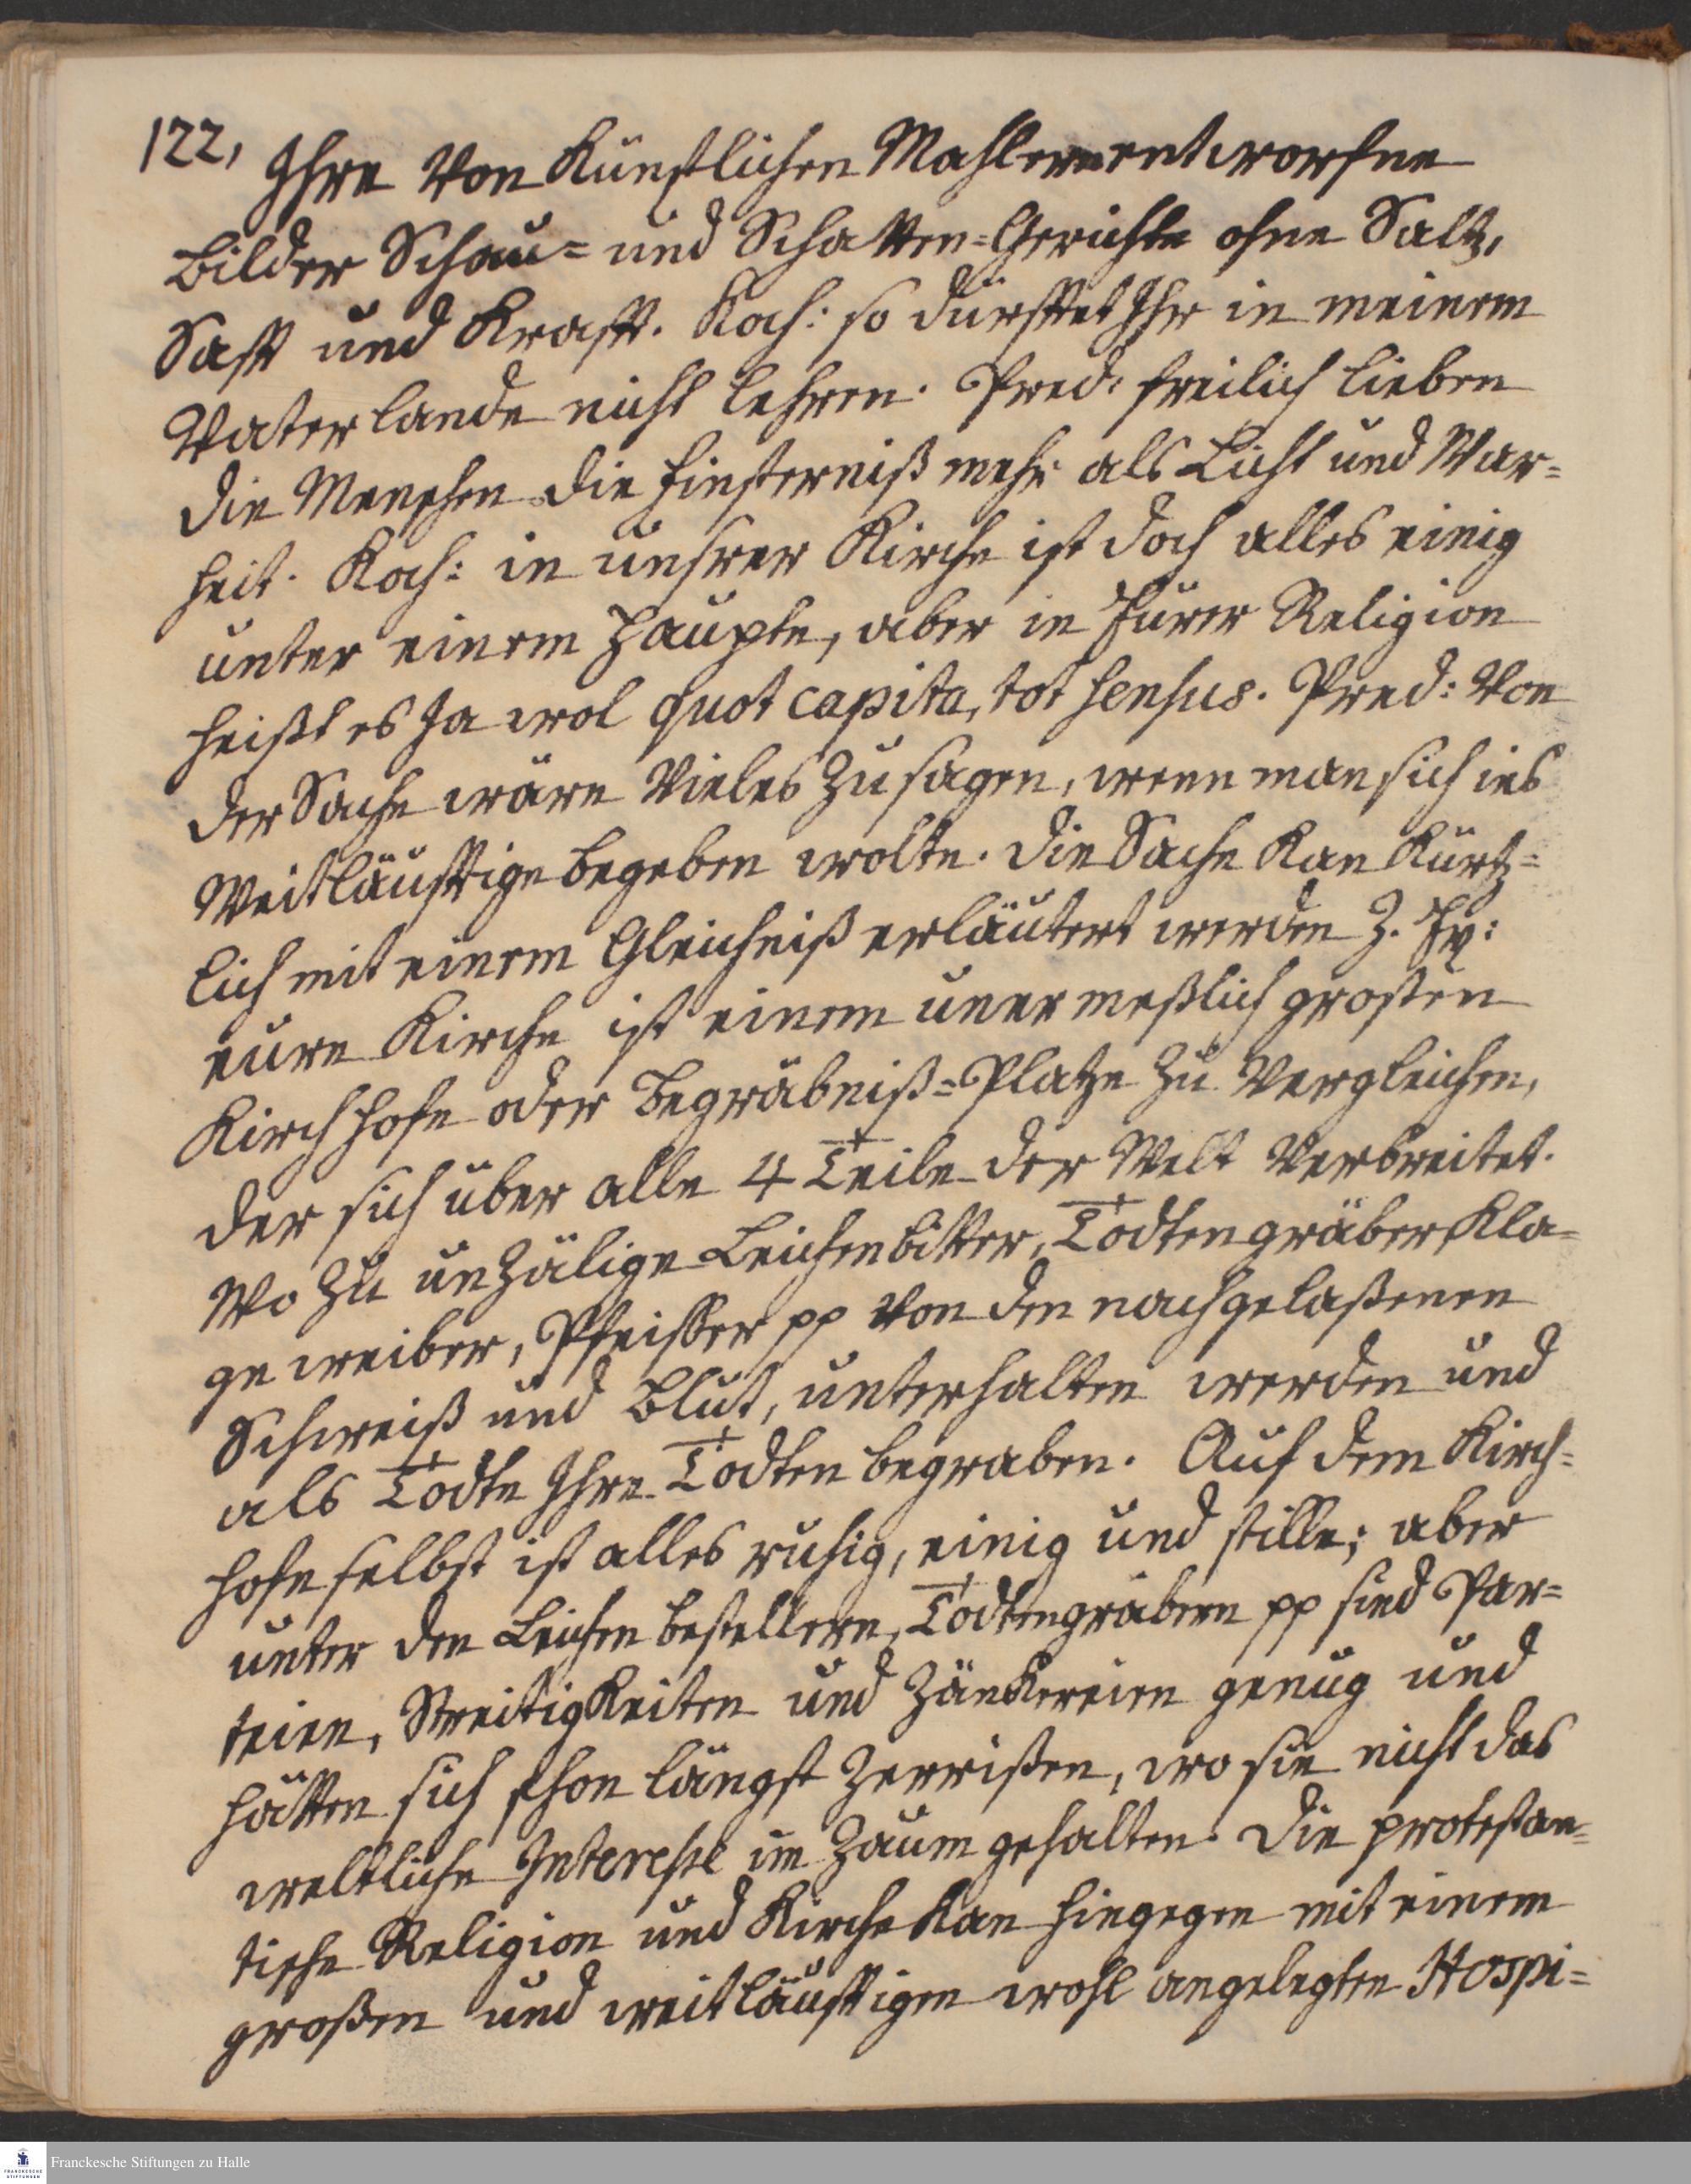 122, Ihre von Künstlichen Mahlern entworfne
Bilder Schau= und Schatten=Gerichte ohne Saltz,
Safft und Krafft. Koch: so dürfftet Ihr in meinem
Vaterlande nicht lehren. Pred: freilich lieben
die Menschen die Finsterniß mehr als Licht und War=
heit. Koch: in unsrer Kirche ist doch alles einig
unter einem Haupte, aber in Eurer Religion
heißt es Ja wol quot capita, tot sensus. Pred: Von
der Sache wäre Vieles zu sagen, wenn man sich ins
Weitläufftige begeben wolte. die Sache Kan Kürtz=
lich mit einem Gleichniß erläutert werden z. Ex:
eure Kirche ist einem unermeßlich großen
Kirchhofe oder Begräbniß=Platze zu Vergleichen,
der sich über alle 4 Teile der Welt Verbreitet.
Wo zu unzälige Leichenbitter, Todtengräber, Kla=
geweiber, Pfeiffer pp von den nachgelaßenen
Schweiß und Blut, unterhalten werden und
als Todte Ihre Todten begraben. Auf dem Kirch=
hofe selbst ist alles ruhig, einig und stille; aber
unter den Leichen bestellern, Todtengräbern pp sind Par=
teien, Streitigkeiten und Zänkereien genug und
hätten sich schon längst zerrißen, wo sie nicht das
weltliche Interesse im Zaum gehalten. Die protestan=
tische Religion und Kirche Kan hingegen mit einem
großen und weitläufftigen wohl angelegten Hospi=
Franckesche Stiftungen zu Halle